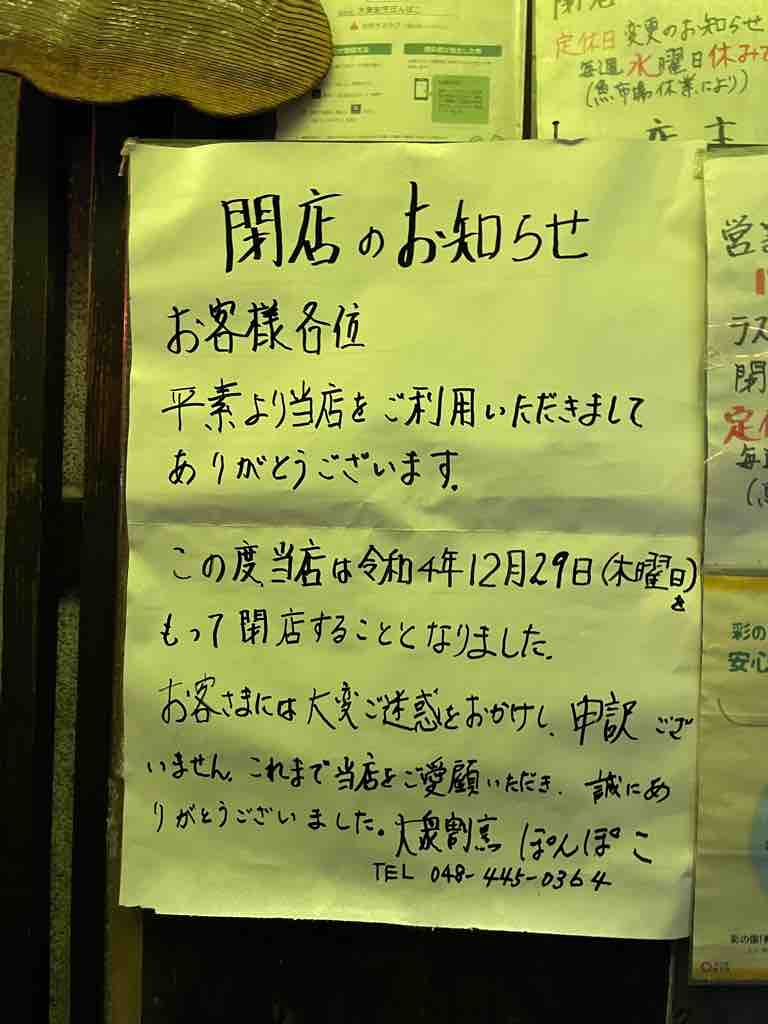 定休日 変更のお知らせ
毎週 水曜日 休み
(魚市場休業により)
店主
閉店のお知らせ
お客様各位
平素より当店をご利用いただきまして
ありがとうございます。
この度、当店は令和4年12月29日(木曜日)を
もって閉店することとなりました。
お客さまには大変ご迷惑をおかけし、申訳ござ
いません。これまで当店をご愛顧いただき、誠にあ
りがとうございました。大衆割烹 ぽんぽこ
TEL 048-445-0364
彩の
安心